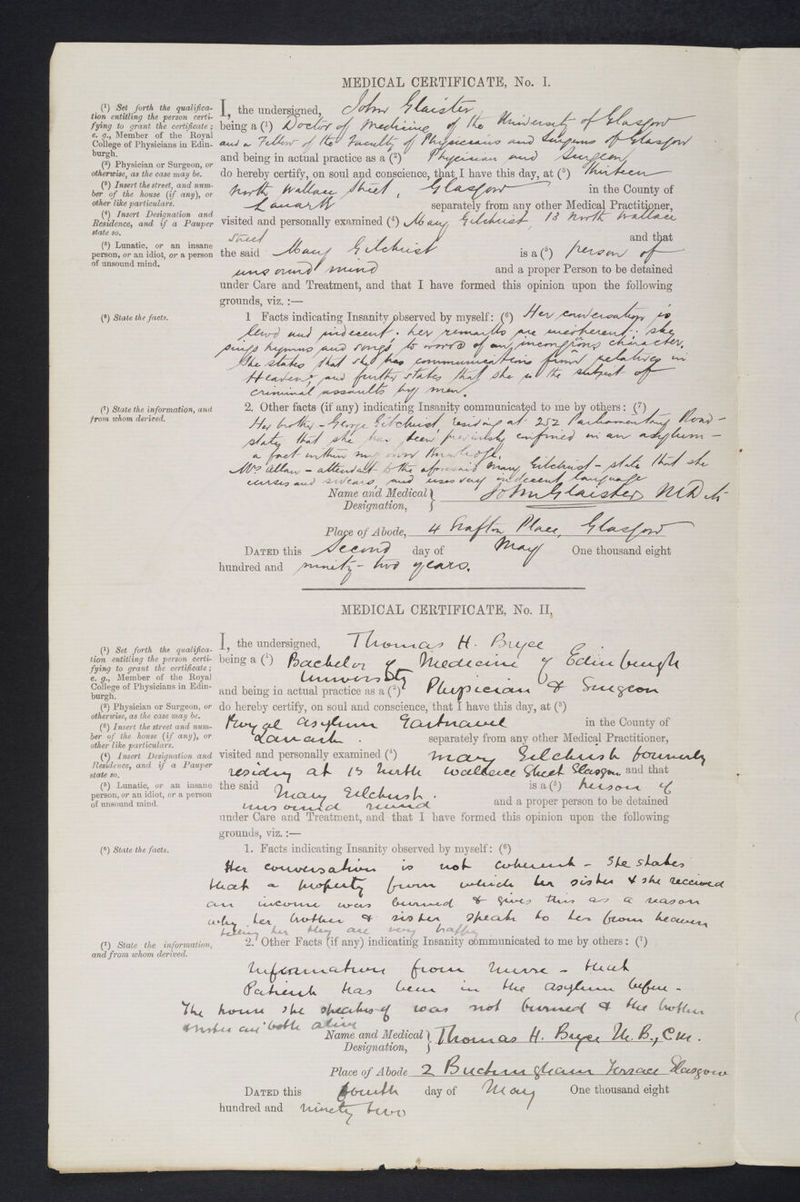 MEDICAL CERTIFICATE, No. I.
(1) Set forth the qualifica-
tion entitling the person certi-
fying to grant the certificate;
e. g., Member of the Royal
College of Physicians in Edin-
burgh.
(2) Physician or Surgeon, or
otherwise, as the case may be.
(3) Insert the street, and num-
ber of the house (if any), or
other like particulars.
(4) Insert Designation and
Residence, and if a Pauper
state so.
(5) Lunatic, or an insane
person, or an idiot, or a person
of unsound mind.
I, the undersigned, John Glaister
being a (1) Doctor of Medicine of the University of Glasgow
and a Fellow of the Faculty of Physicians and Surgeons of Glasgow
and being in actual practice as a (2) Physician and Surgeon,
do hereby certify, on soul and conscience, that I have this day, at (3) thirteen
North Wallace Street, Glasgow in the County of
Lanark separately from any other Medical Practitioner,
visited and personally examined (4) Mary Gilchrist, 13 North Wallace
Street and that
the said Mary Gilchrist is a (5) person of
unsound mind and a proper Person to be detained
under Care and Treatment, and that I have formed this opinion upon the following
grounds, viz. :—
(6) State the facts.
1 Facts indicating Insanity observed by myself: (6) Her conversation is
lewd and indecent. her remarks are incoherent: she
sings hymns and songs to words of an incongruous character.
She states that she has communications from relatives in
Heaven, and further states that she is the subject of
criminal assaults by men.
(7) State the information, and
from whom derived.
2. Other facts (if any) indicating Insanity communicated to me by others: (7)
Her brother - George Gilchrist, residing at 252 Parliamentary Road -
states that she has been previously confined in an asylum -
a fact within my own knowledge.
Mrs Allan - attendant to the aforesaid Mary Gilchrist - states that she
curses and swears, and uses very indecent language
Name and Medical Designation, } John Glaister M.D. &c
Place of Abode, 4 Grafton Place, Glasgow
DATED this Second day of May One thousand eight
hundred and ninety-two years.
MEDICAL CERTIFICATE, No. II,
(1) Set forth the qualifica-
tion entitling the person certi-
fying to grant the certificate;
e. g., Member of the Royal
College of Physicians in Edin-
burgh.
(2) Physician or Surgeon, or
otherwise, as the case may be.
(3) Insert the street and num-
ber of the house (if any), or
other like particulars.
(4) Insert Designation and
Residence, and if a Pauper
state so.
(5) Lunatic, or an insane
person, or an idiot, or a person
of unsound mind.
I, the undersigned, Thomas H. Bryce
being a (1) Bachelor of Medicine of Edinburgh
University
and being in actual practice as a (2) Physician & Surgeon
do hereby certify, on soul and conscience, that I have this day, at (3)
Royal Asylum Gartnavel in the County of
Lanark. separately from any other Medical Practitioner,
visited and personally examined (4) Mary Gilchrist formerly
residing at 13 North Wallace Street Glasgow and that
the said Mary Gilchrist. is a (5) person of
unsound mind and a proper person to be detained
under Care and Treatment, and that I have formed this opinion upon the following
grounds, viz. :—
(6) State the facts.
1. Facts indicating Insanity observed by myself: (6)
Her conversation is not coherent - She states
that a property from which her sister & she received
an income was burned & gives this as a reason
why her brother & sister speak to her from heaven
telling her they are very happy
(7) State the information,
and from whom derived.
2. Other Facts (if any) indicating Insanity communicated to me by others: (7)
Information from Nurse - that
Patient has been in the asylum before -
The house she speaks of was not burned & the brother
& sister are both alive
Name and Medical Designation, } Thomas H. Bryce M.B., C.M.
Place of Abode 2 Buckingham Terrace Glasgow
DATED this fourth day of May One thousand eight
hundred and ninety two